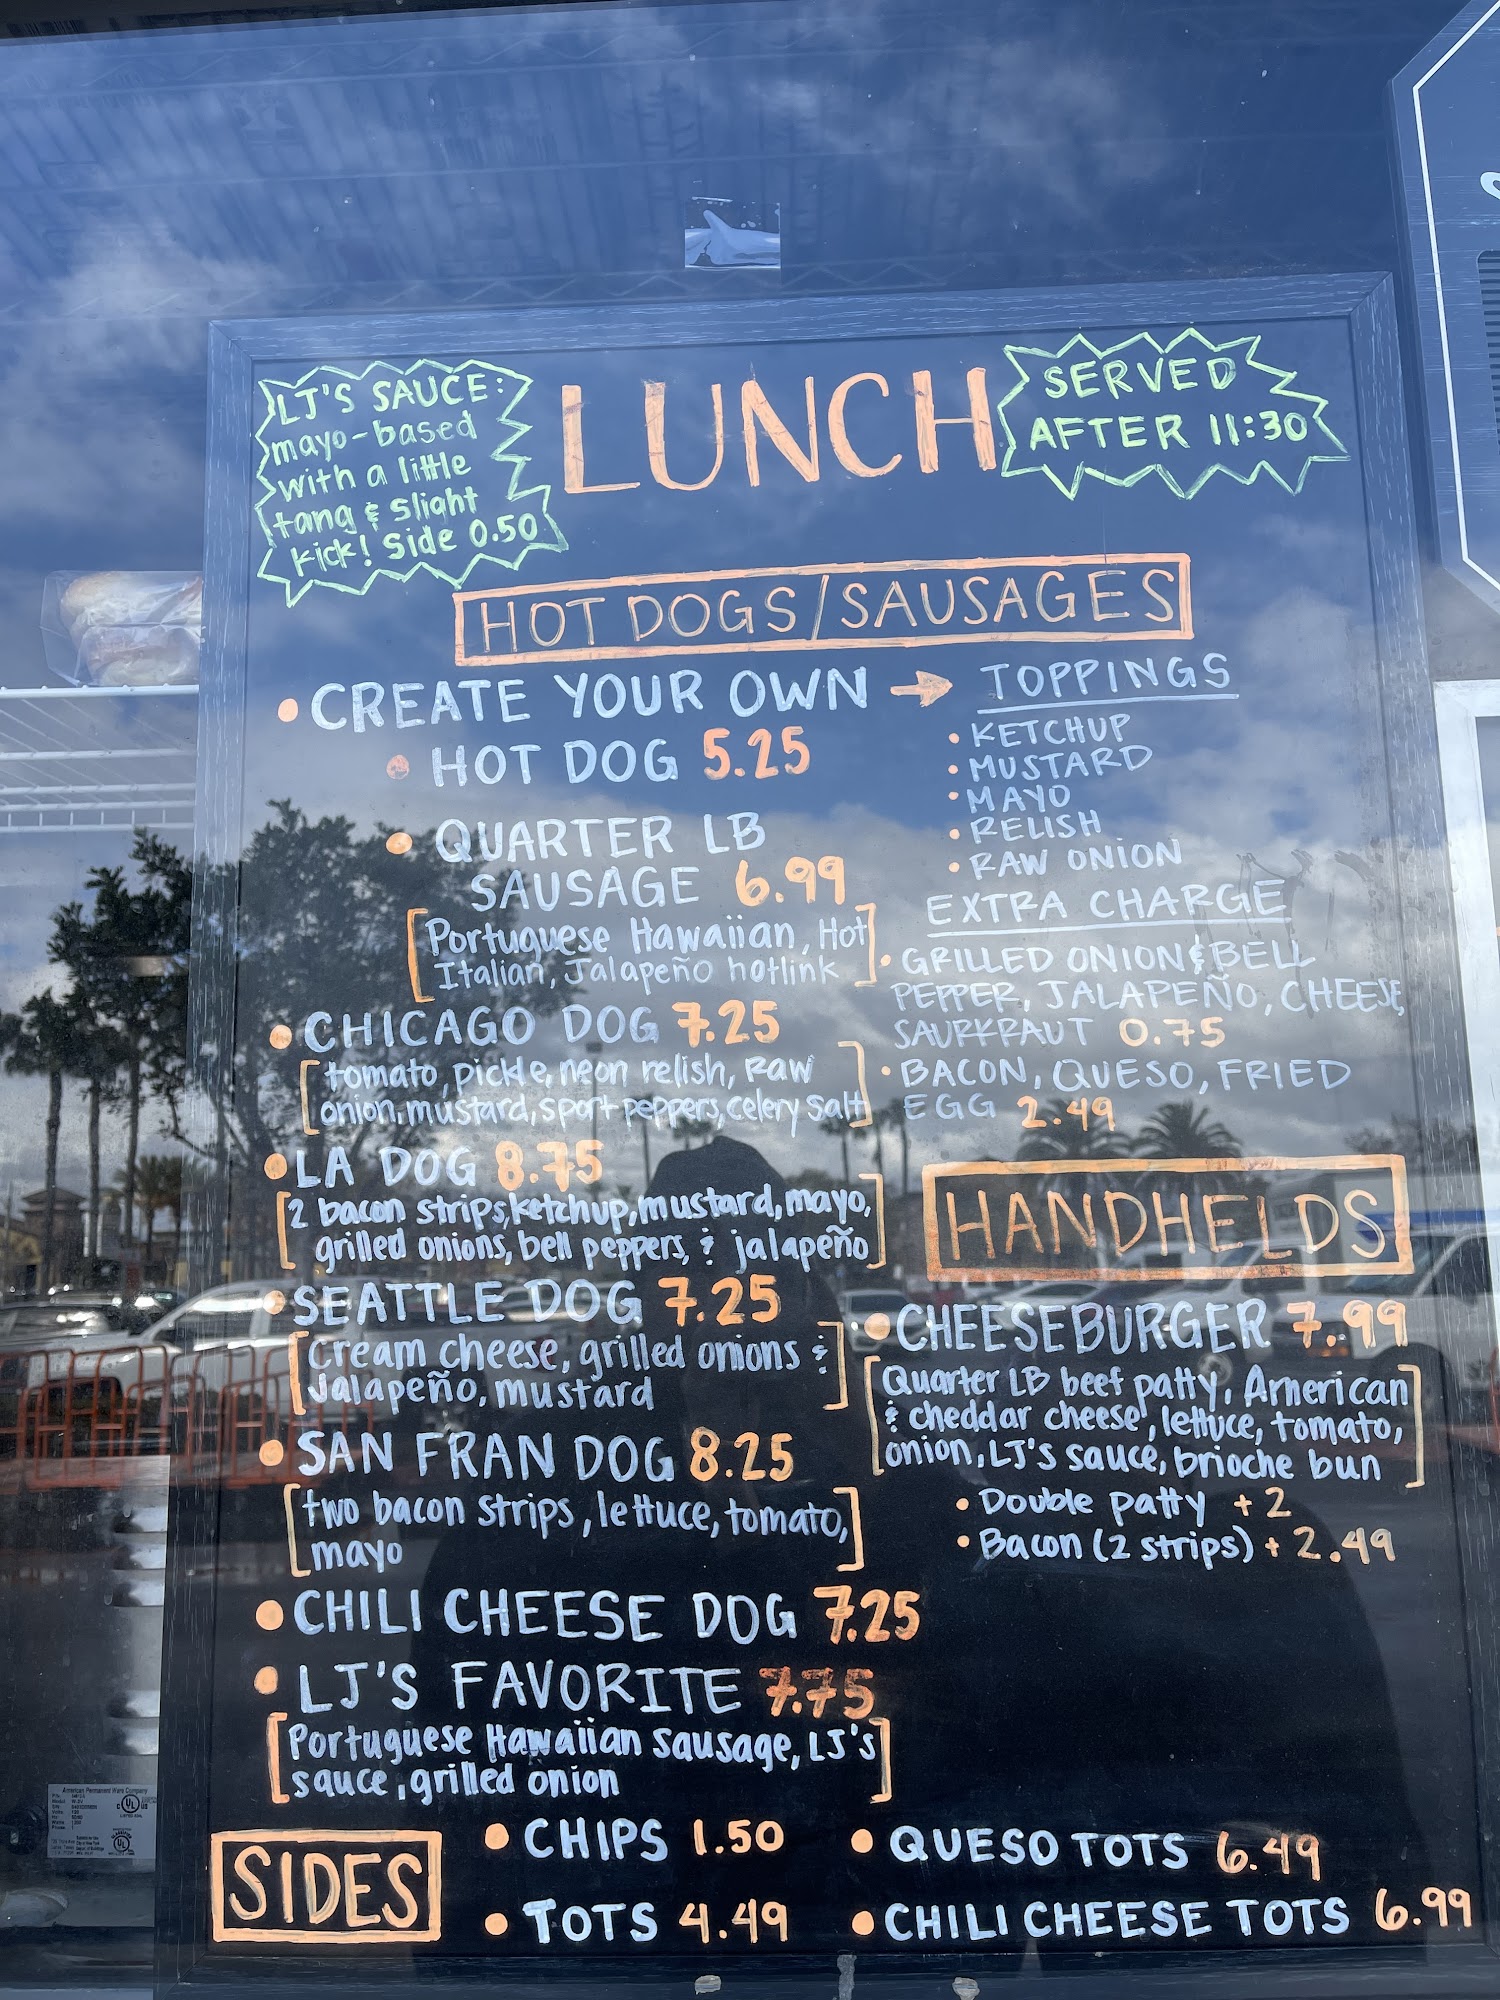 LJ'S SAUCE:
mayo-based
with a little
tang & slight
kick! Side 0.50
LUNCH
SERVED
AFTER 11:30
HOT DOGS/SAUSAGES
• CREATE YOUR OWN →
• HOT DOG 5.25
• QUARTER LB
SAUSAGE 6.99
[Portuguese Hawaiian, Hot
Italian, Jalapeño hotlink]
TOPPINGS
• KETCHUP
• MUSTARD
• MAYO
• RELISH
• RAW ONION
EXTRA CHARGE
• GRILLED ONION & BELL
PEPPER, JALAPEÑO, CHEESE,
SAURKRAUT 0.75
• BACON, QUESO, FRIED
EGG 2.49
• CHICAGO DOG 7.25
[tomato, pickle, neon relish, raw
onion, mustard, sport peppers, celery salt]
• LA DOG 8.75
[2 bacon strips, ketchup, mustard, mayo,
grilled onions, bell peppers, & jalapeño]
• SEATTLE DOG 7.25
[Cream cheese, grilled onions &
Jalapeño, mustard]
• SAN FRAN DOG 8.25
[two bacon strips, lettuce, tomato,
mayo]
• CHILI CHEESE DOG 7.25
• LJ'S FAVORITE 7.75
[Portuguese Hawaiian Sausage, LJ's
sauce, grilled onion]
HANDHELDS
• CHEESEBURGER 7.99
[Quarter LB beef patty, American
& cheddar cheese, lettuce, tomato,
onion, LJ's sauce, brioche bun]
• Double patty +2
• Bacon (2 strips) + 2.49
SIDES
• CHIPS 1.50
• TOTS 4.49
• QUESO TOTS 6.49
• CHILI CHEESE TOTS 6.99
American Permanent Ware Company